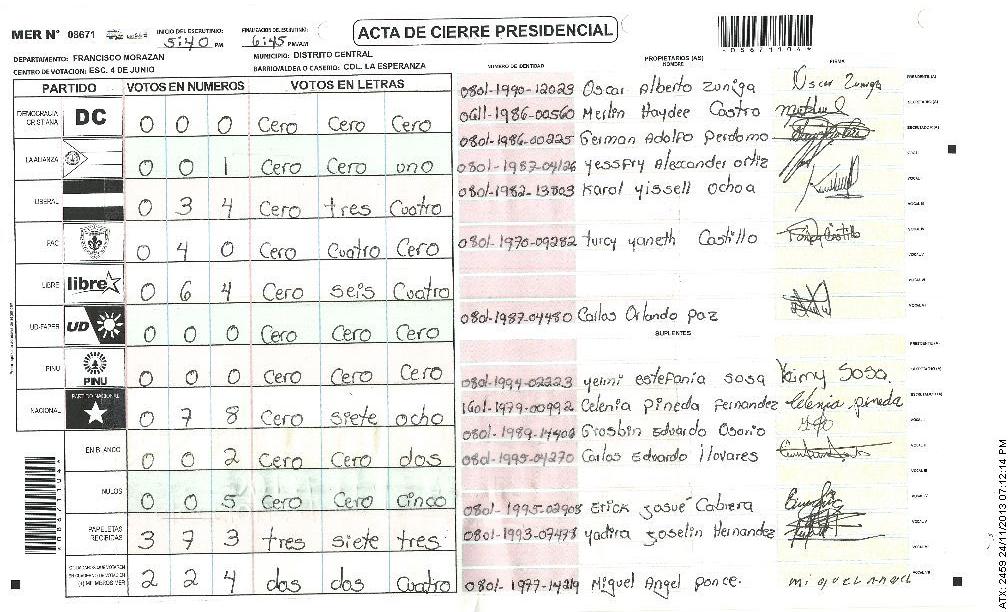 MER N° 08671
INICIO DEL ESCRUTINIO: 5:40 PM
FINALIZACION DEL ESCRUTINIO: 6:45 PM/AM
ACTA DE CIERRE PRESIDENCIAL
*08671104*
DEPARTAMENTO: FRANCISCO MORAZAN
MUNICIPIO: DISTRITO CENTRAL
CENTRO DE VOTACION: ESC. 4 DE JUNIO
BARRIO/ALDEA O CASERIO: COL. LA ESPERANZA
PARTIDO VOTOS EN NUMEROS VOTOS EN LETRAS
DEMOCRACIA CRISTIANA DC 0 0 0 Cero Cero Cero
LA ALIANZA 0 0 1 Cero Cero uno
LIBERAL 0 3 4 Cero tres Cuatro
PAC 0 4 0 Cero Cuatro Cero
LIBRE libre 0 6 4 Cero seis Cuatro
UD-FAPER UD 0 0 0 Cero Cero Cero
PINU PINU 0 0 0 Cero Cero Cero
NACIONAL PARTIDO NACIONAL 0 7 8 Cero siete ocho
EN BLANCO 0 0 2 Cero Cero dos
NULOS 0 0 5 Cero Cero Cinco
PAPELETAS RECIBIDAS 3 7 3 tres siete tres
2 2 4 dos dos Cuatro
NUMERO DE IDENTIDAD
PROPIETARIOS (AS)
NOMBRE
FIRMA
0801-1990-12023 Oscar Alberto Zuniga Oscar Zuniga PRESIDENTE(A)
0611-1986-00560 Merlin Haydee Castro SECRETARIO(A)
0801-1986-00225 German Adolfo Perdomo ESCRUTADOR(A)
0801-1987-04126 yessfry Alexander ortiz VOCAL I
0801-1982-13803 Karol yissell Ochoa
0801-1970-09282 turcy yaneth Castillo
0801-1987-04480 Carlos Orlando paz
SUPLENTES
PRESIDENTE(A)
0801-1994-02223 yeimi estefania sosa Yeimy Sosa. SECRETARIO(A)
1601-1979-00992 Celenia pineda Fernandez Celenia pineda
0801-1989-14406 Grosbin Eduardo Osorio
0801-1995-04270 Carlos Eduardo llovares
0801-1995-02908 Erick josué Cabrera
0801-1993-07478 yadira joselin Hernandez
0801-1977-14219 Miguel Angel ponce. miguel angel
*08671104*
ATX: 2459 24/11/2013 07:12:14 PM